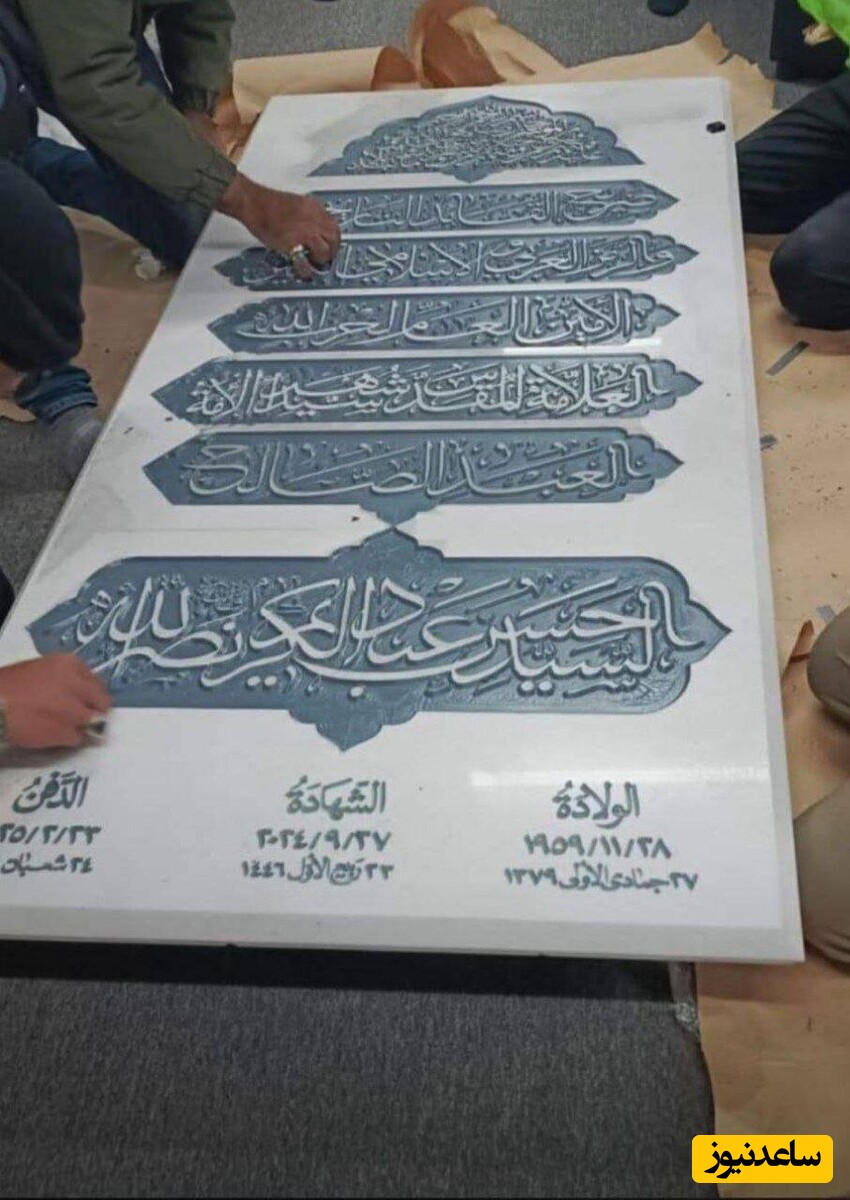 ضريح القائد
والرمز العربي والإسلامي
الأمين العام لحزب الله
العلامة المقدس شهيد الأمة
العبد الصالح
السيد حسن عبد الكريم نصر الله
الولادة
١٩٥٩/١١/٢٨
٢٧ جمادى الأولى ١٣٧٩
الشهادة
٢٠٢٤/٩/٢٧
٢٣ ربيع الأول ١٤٤٦
الدفن
٢٥/٢/٢٣
٢٤ شعبان
ساعدنیوز